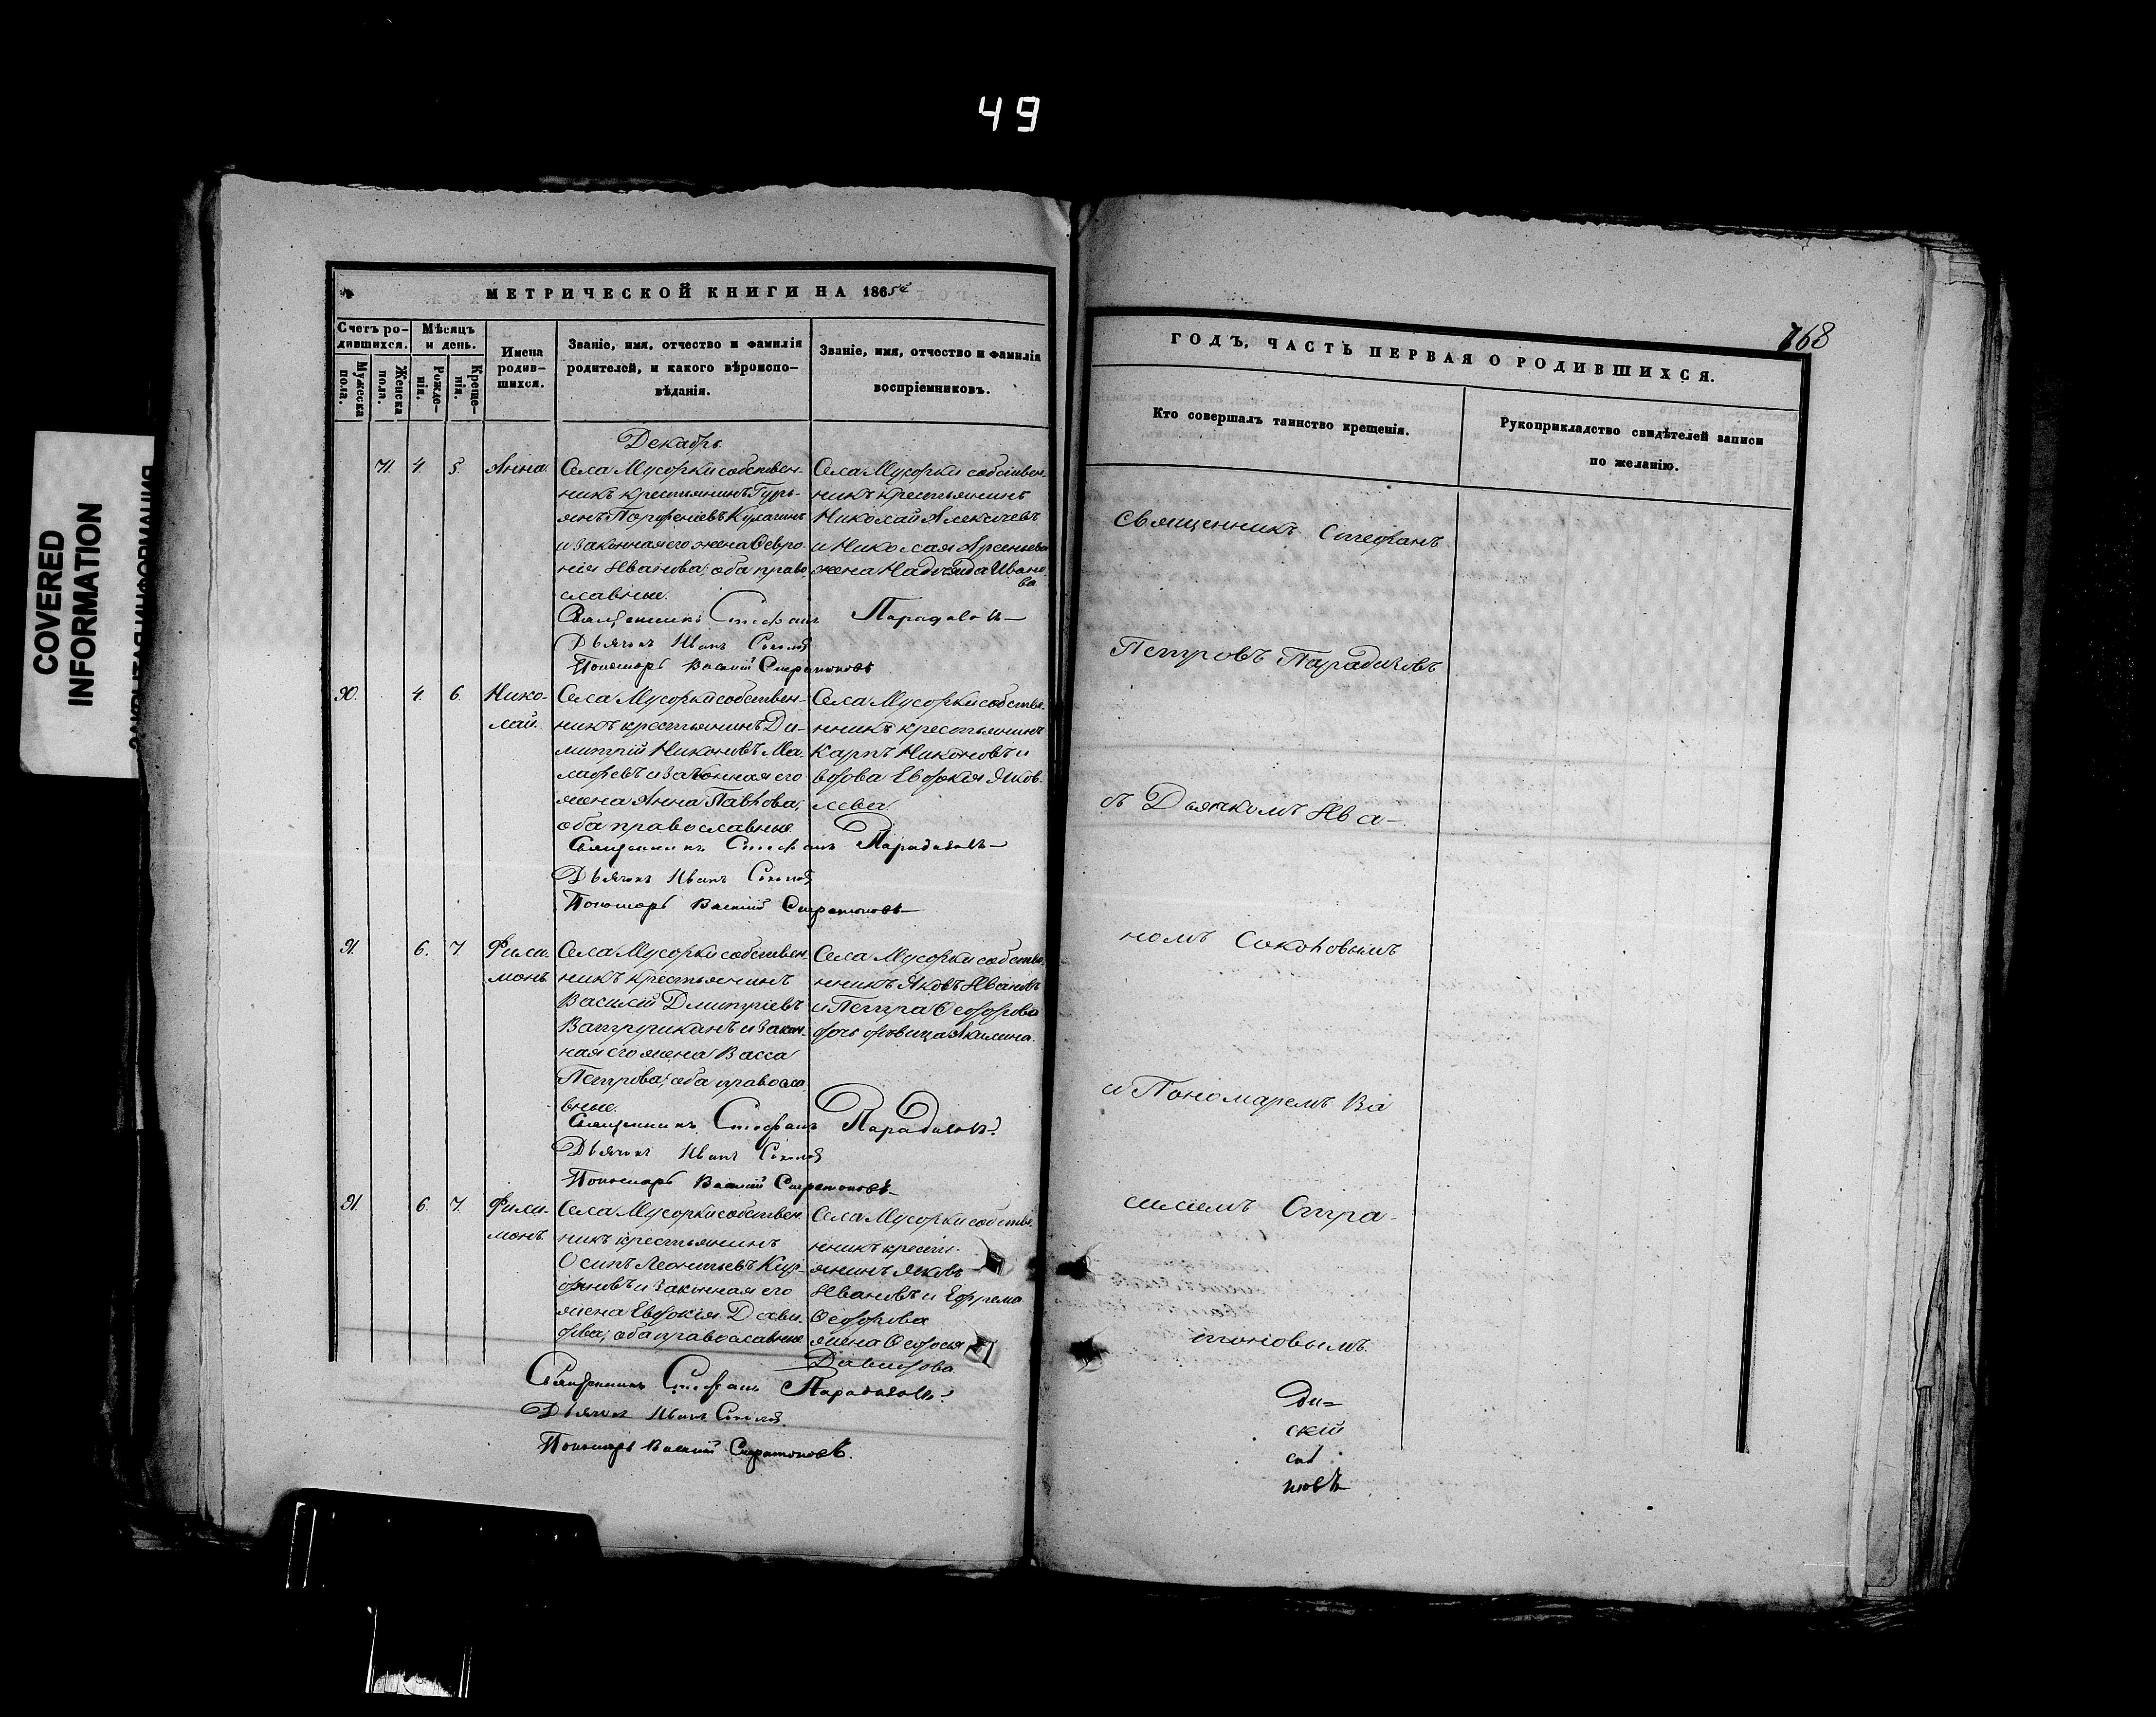 49
COVERED
INFORMATION
МЕТРИЧЕСКОЙ КНИГИ НА 1865й
Счетъ ро-
дившихся.
Мужеска
пола.
Женска
пола.
Мѣсяцъ
и день.
Рожде-
нія.
Креще-
нія.
Имена
родив-
шихся.
Званіе, имя, отчество и фамилія
родителей, и какого вѣроиспо-
вѣданія.
Званіе, имя, отчество и фамилія
воспріемниковъ.
Декабрь
71. 4. 5. Анна.
Села Мусорки собствен-
никъ крестьянинъ Гурь-
янъ Парфеніевъ Кулагинъ
и законная его жена Февро-
нія Иванова; оба право-
славные.
Села Мусорки собствен-
никъ крестьянинъ
Николай Алексѣевъ
и Николая Арсеньева
жена Надежда Ивано-
ва
Священникъ Стефанъ Парадизовъ
Дьячокъ Иванъ Соколовъ
Пономарь Василій Стратоновъ
90. 4. 6. Нико-
лай.
Села Мусорки собствен-
никъ крестьянинъ Ди-
митрій Никоновъ Ма-
лафѣевъ и законная его
жена Анна Павлова;
оба православные.
Села Мусорки собстве-
нникъ крестьянинъ
Карпъ Никоновъ и
вдова Евдокія Яков-
лева.
Священникъ Стефанъ Парадизовъ
Дьячокъ Иванъ Соколовъ
Пономарь Василій Стратоновъ
91. 6. 7. Фили-
монъ.
Села Мусорки собствен-
никъ крестьянинъ
Василій Дмитріевъ
и закон-
ная его жена Васса
Петрова; оба правосла-
вные.
Села Мусорки собстве-
нникъ Яковъ Ивановъ
и Петра Ѳеодорова
дочь дѣвица Акилина.
Священникъ Стефанъ Парадизовъ
Дьячокъ Иванъ Соколовъ
Пономарь Василій Стратоновъ
91. 6. 7. Фили-
монъ.
Села Мусорки собствен-
никъ крестьянинъ
Осипъ Леонтьевъ Кир-
и законная его
жена Евдокія Дави-
дова; оба православные
Села Мусорки собстве-
нникъ крестъ-
янинъ Яковъ
Ивановъ и Ефрема
Ѳеодорова
жена Ѳедосья
Давидова.
Священникъ Стефанъ Парадизовъ
Дьячокъ Иванъ Соколовъ.
Пономарь Василій Стратоновъ.
768
ГОДЪ, ЧАСТЬ ПЕРВАЯ О РОДИВШИХСЯ.
Кто совершалъ таинство крещенія.
Рукоприкладство свидѣтелей записи
по желанію.
Священникъ Стефанъ
Петровъ Парадизовъ
съ Дьячкомъ Ива-
номъ Соколовымъ
и Пономаремъ Ва
силіемъ Стра-
тоновымъ.
скій
новъ